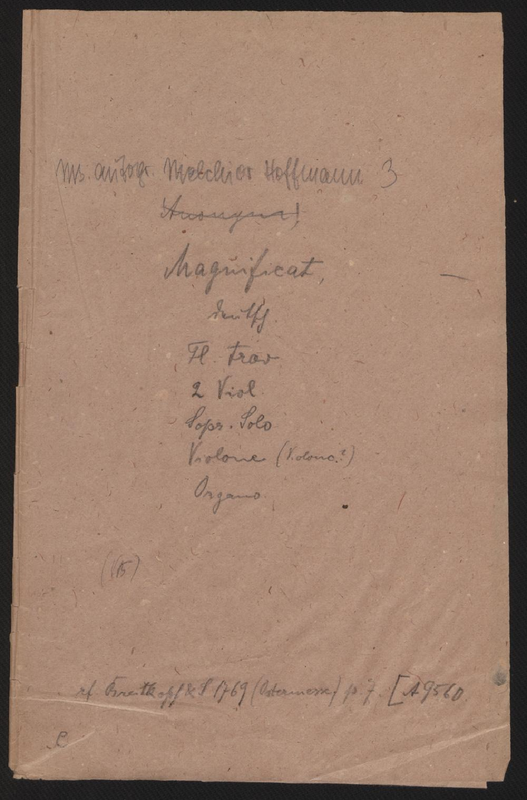 Ms. autogr. Melchior Hoffmann 3
Anonymus!
Magnificat,
deutsch.
Fl. trav
2 Viol
Sopr. Solo
Violone (Violonc.?)
Organo
Breitkopf & S 1769 (Ostermesse) p. 7 [A 9560